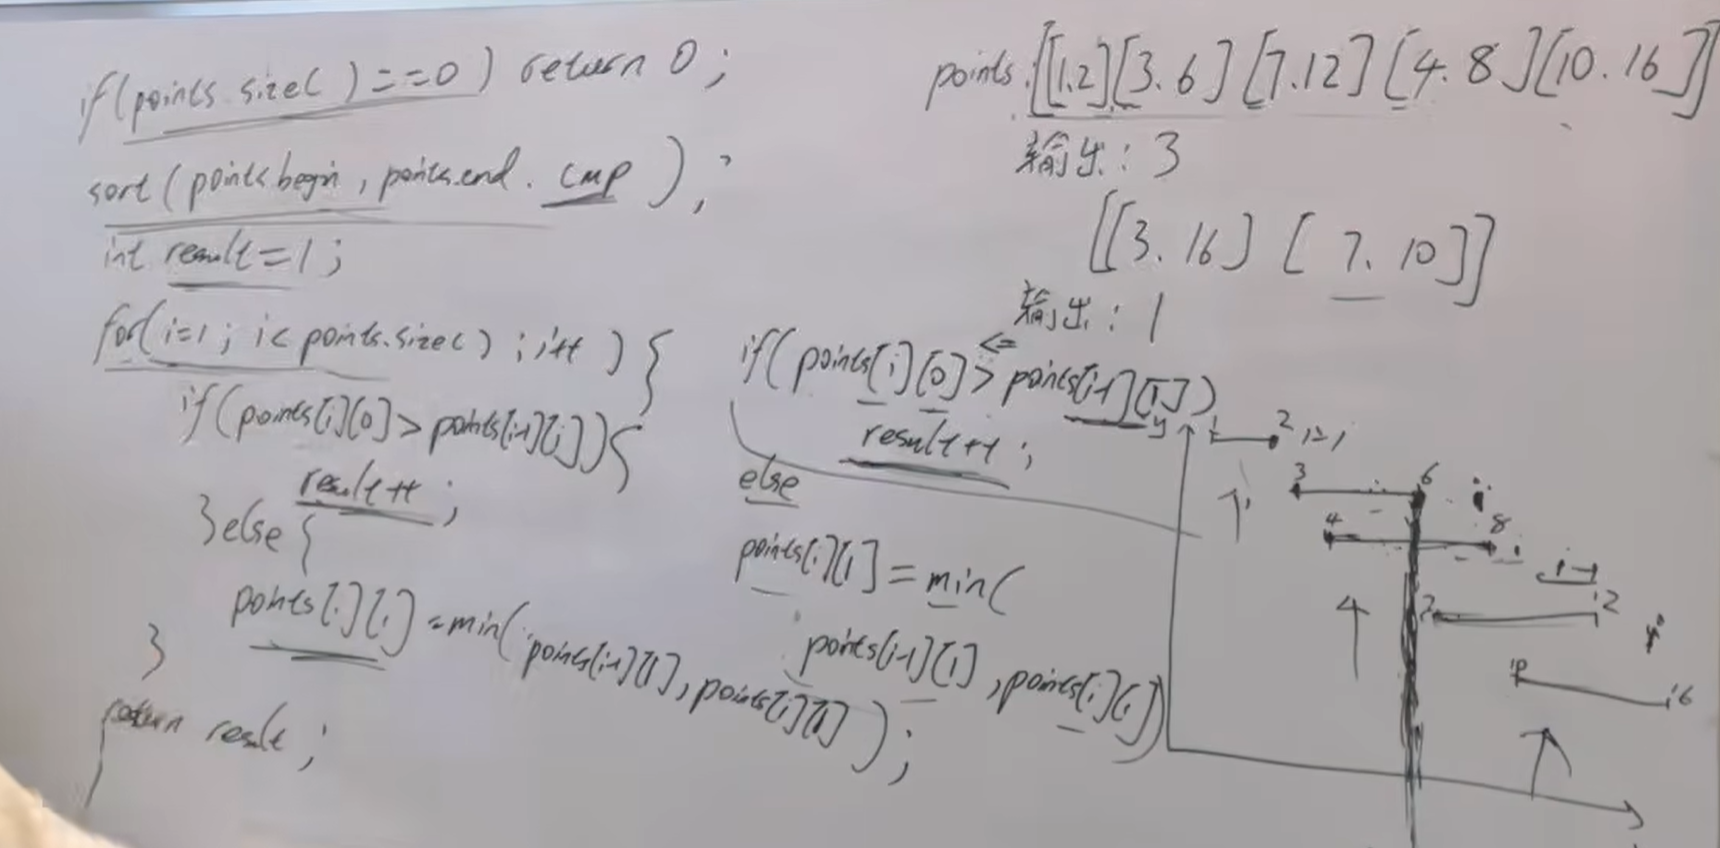 if(points.size()==0) return 0;
sort(points.begin, points.end. cmp);
int result=1;
for(i=1; i<points.size(); i++){
if(points[i][0]>points[i-1][1]){
result++;
}else{
points[i][1]=min(points[i-1][1],points[i][1]);
}
return result;
points.[[1.2][3.6][7.12][4.8][10.16]]
输出:3
[[3.16][7.10]]
输出:1
<=
if(points[i][0]>points[i-1][1])
result++;
else
points[i][1]=min(
points[i-1][1],points[i][1])
y
1 2
3 6
4 8
7 12
10 16